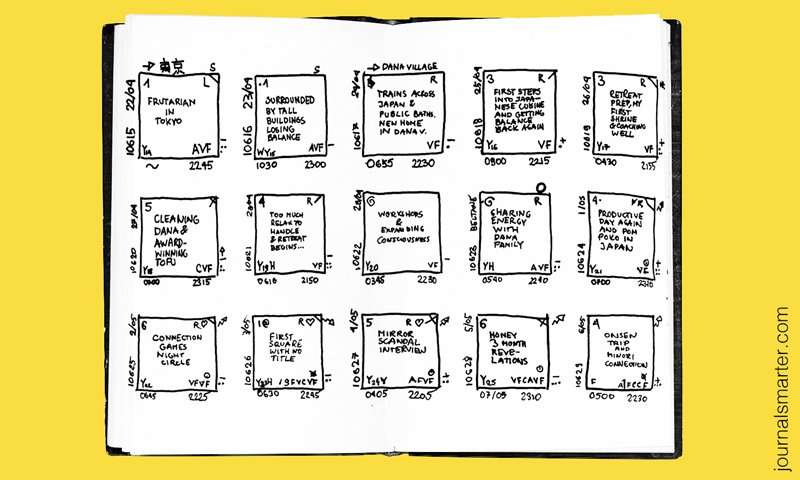 → 東京 S
22/04
10615
1 L
FRUTARIAN
IN
TOKYO
Y14 AVF
~ 2245
S
23/04
10616
1
SURROUNDED
BY TALL
BUILDINGS
LOSING
BALANCE
WY15 AVF
1030 2300
→ DANA VILLAGE
24/04
10617
R
TRAINS ACROSS
JAPAN &
PUBLIC BATHS.
NEW HOME
IN DANA V.
VF
0635 2230
25/04
10618
3 R
FIRST STEPS
INTO JAPA-
NESE CUSINE
AND GETTING
BALANCE
BACK AGAIN
Y16 VF
0800 2215
26/04
10619
3 R
RETREAT
PREP, MY
FIRST
SHRINE
& COACHING
WELL
Y17 VF
0430 2155
10620
5
CLEANING
DANA &
AWARD-
WINNING
TOFU
Y18 CVF
2315
10621
4 R
TOO MUCH
RELAX TO
HANDLE
& RETREAT
BEGINS...
Y19H VF
0610 2150
10622
6
WORKSHOPS
&
EXPANDING
CONSCIOUSNESS
Y20 VF
0345 2230
10623
6 R
SHARING
ENERGY
WITH
DANA
FAMILY
YH AVF
0540 2240
1/05
10624
4
PRODUCTIVE
DAY AGAIN
AND POM
POKO IN
JAPAN
Y21 VF
2/05
10625
6 R♡
CONNECTION
GAMES
NIGHT
CIRCLE
VFVF
2225
3/05
10626
R♡
FIRST
SQUARE
WITH NO
TITLE
0630 2245
4/05
10627
5 R♡
MIRROR
SCANDAL
INTERVIEW
AFVF
0405 2205
5/05
10628
6
HONEY
3 MONTH
REVE-
LATIONS
Y25 VFCAVF
2310
6/05
10629
4
ONSEN
TRIP
AND
MINORI
CONNECTION
F
0500 2230
journalsmarter.com